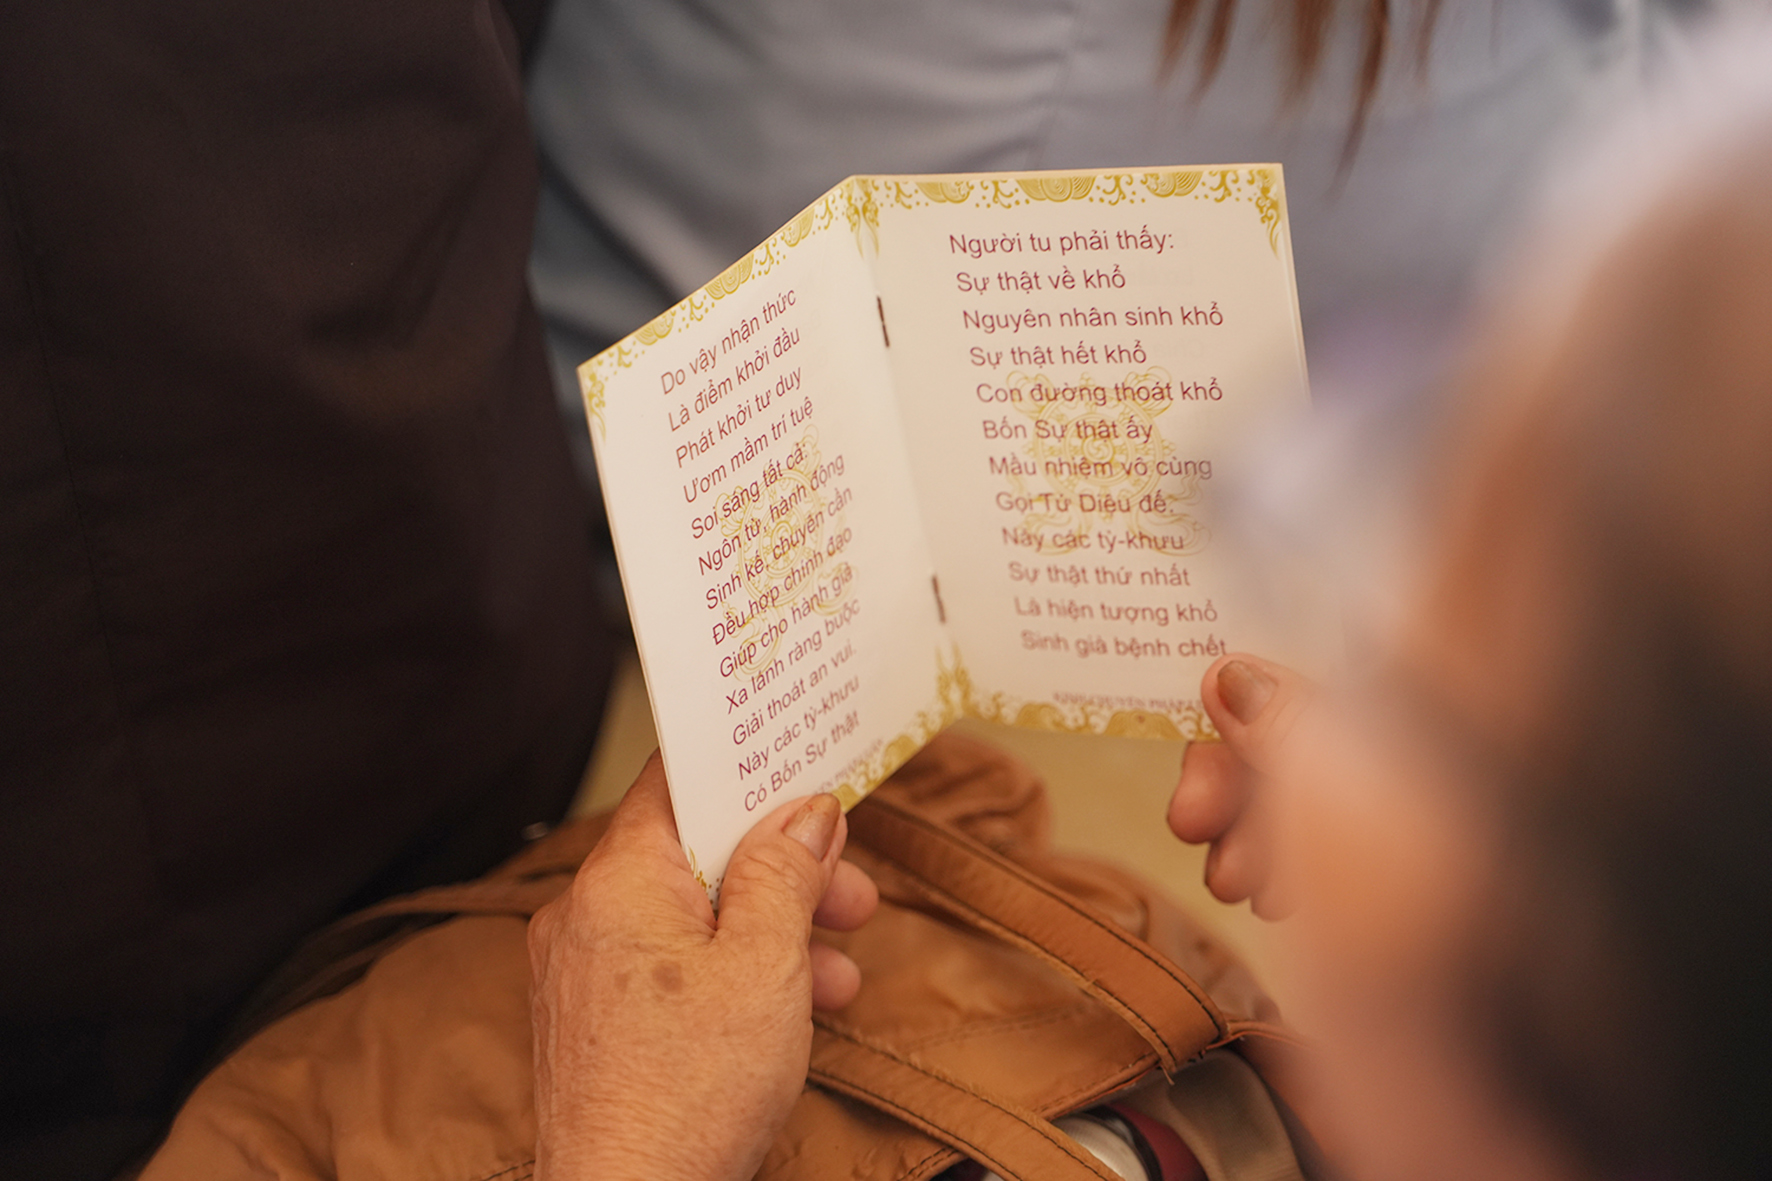 Do vậy nhận thức
Là điểm khởi đầu
Phát khởi tư duy
Ươm mầm trí tuệ
Soi sáng tất cả:
Ngôn từ, hành động
Sinh kế, chuyên cần
Đều hợp chính đạo
Giúp cho hành giả
Xa lánh ràng buộc
Giải thoát an vui.
Này các tỳ-khưu
Có Bốn Sự thật
Người tu phải thấy:
Sự thật về khổ
Nguyên nhân sinh khổ
Sự thật hết khổ
Con đường thoát khổ
Bốn Sự thật ấy
Mầu nhiệm vô cùng
Gọi Tứ Diệu đế:
Này các tỳ-khưu
Sự thật thứ nhất
Là hiện tượng khổ
Sinh già bệnh chết